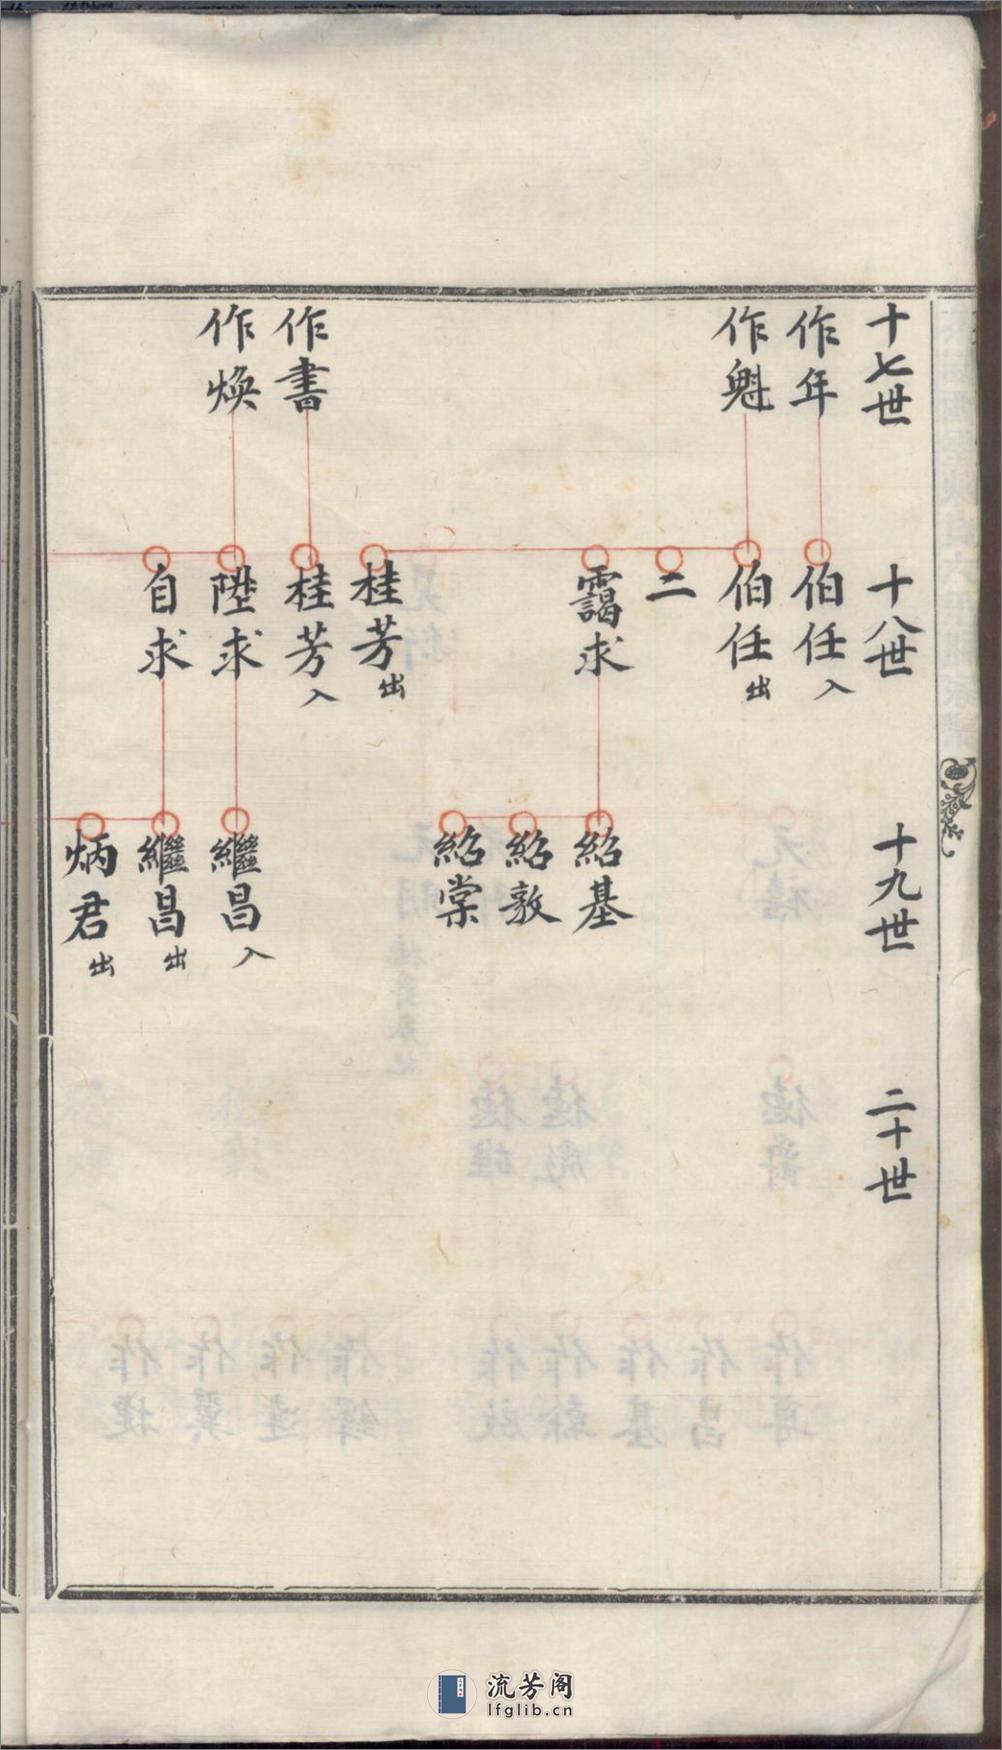 十七世
作年
作魁
作書
作煥
十八世
伯任入
伯任出
二
靄求
桂芳出
桂芳入
陞求
自求
十九世
紹基
紹敦
紹棠
繼昌入
繼昌出
炳君出
二十世
流芳阁
lfglib.cn